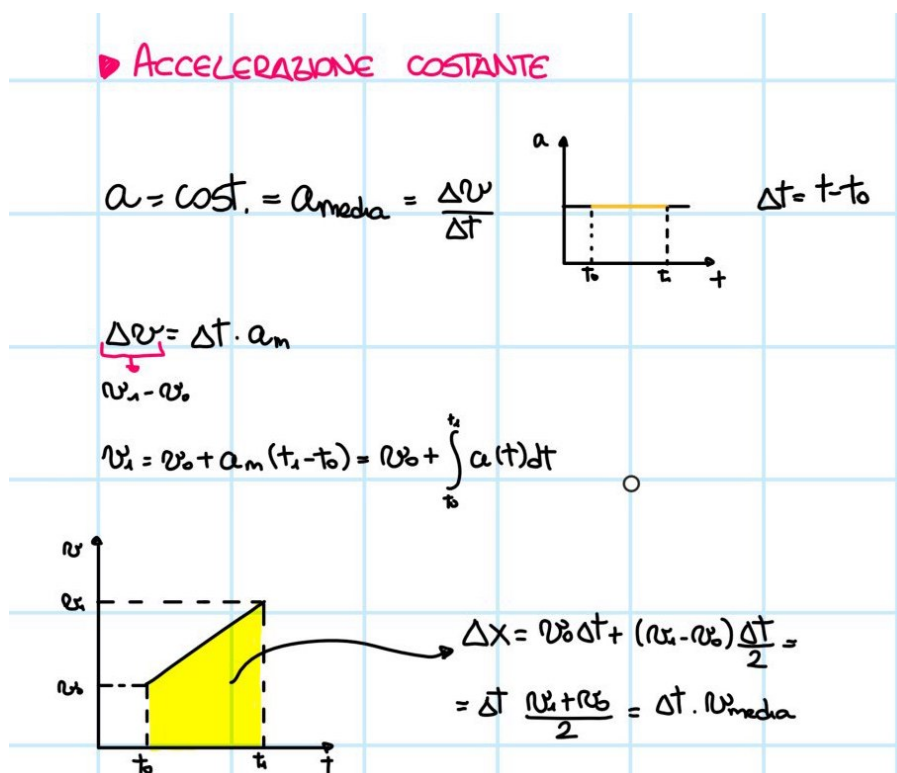 ACCELERAZIONE COSTANTE
a = cost. = a_media = Δv/Δt
a
t₀ t₁ t
Δt = t-t₀
Δv = Δt · a_m
v₁-v₀
v₁ = v₀ + a_m (t₁-t₀) = v₀ + ∫_{t₀}^{t₁} a(t)dt
v
v₁
v₀
t₀ t₁ t
Δx = v₀Δt + (v₁-v₀) Δt/2 =
= Δt (v₁+v₀)/2 = Δt · v_media